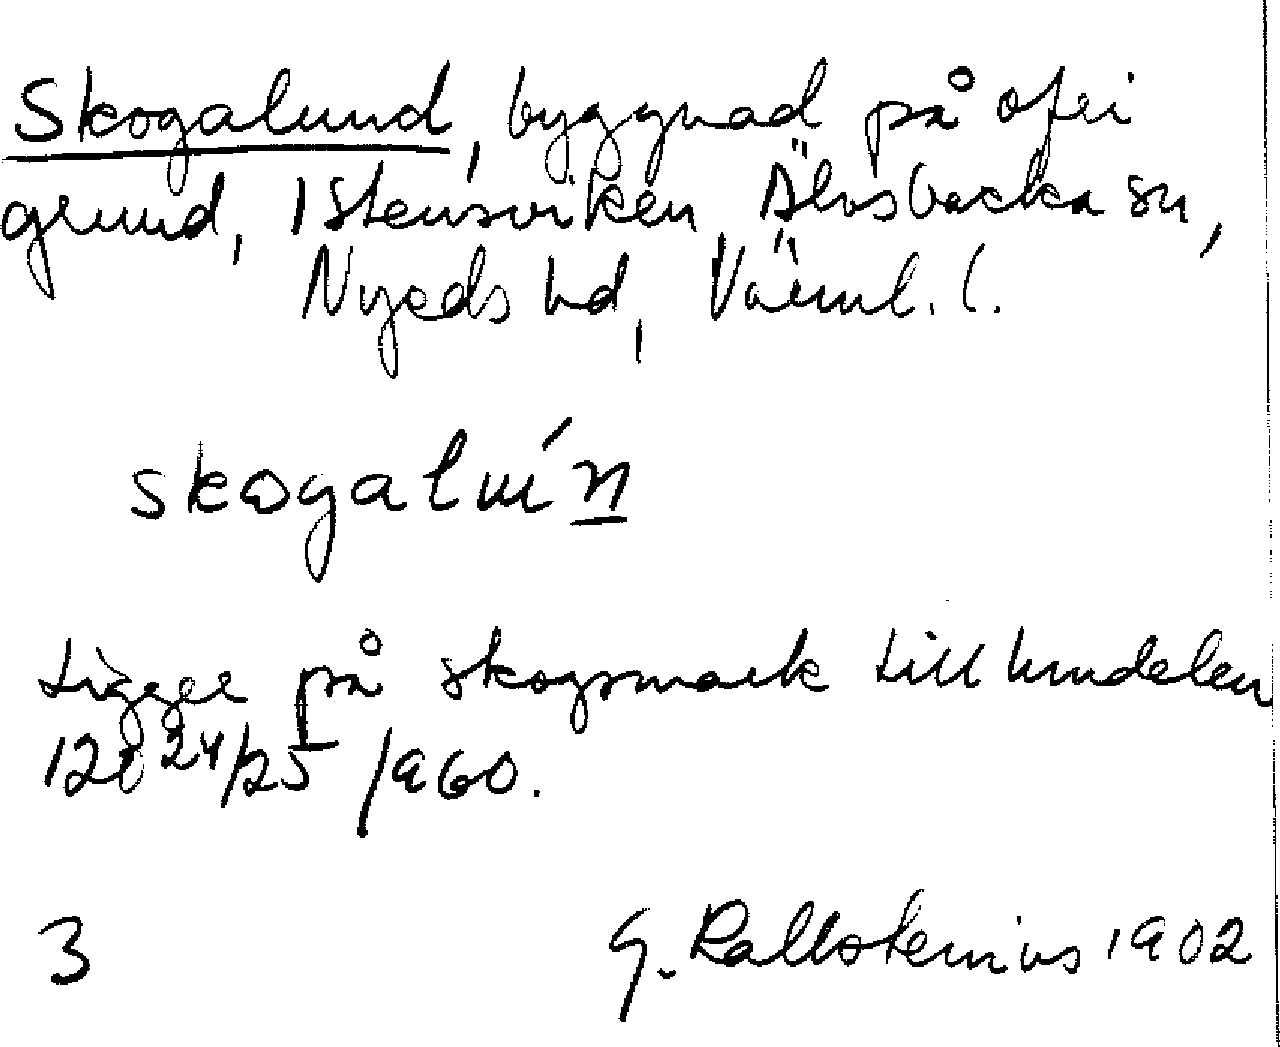 Skogalund, byggnad på ofri
grund, 1 Stensviken, Älvsbacka sn,
Nyeds hd, Värml. l.
skogaluǹn
Ligger på skogsmark till hmdelen
128 24/25 /960.
3 G. Kallstenius 1902